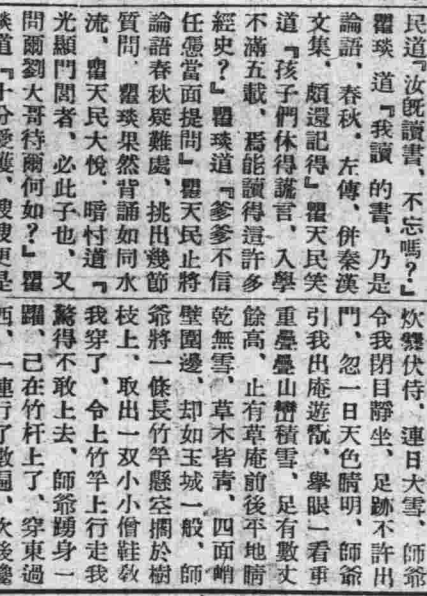 民道『汝旣讀書、不忘嗎？』
瞿琰道『我讀 的書、乃是
論語、春秋、左傳、併秦漢
文集、頗還記得』瞿天民笑
道『孩子們休得謊言、入學
不滿五載、焉能讀得這許多
經史？』瞿琰道『爹爹不信
任憑當面提問』瞿天民止將
論語春秋疑難處、挑出幾節
質問、瞿琰果然背誦如同水
流、瞿天民大悅、暗忖道『
光顯門閭者、必此子也、又
問爾劉大哥待爾何如？』瞿
琰道『十分愛護、嫂嫂更是
炊爨伏侍、連日大雪、師爺
令我閉目靜坐、足跡不許出
門、忽一日天色晴明、師爺
引我出庵遊翫、舉眼一看重
重疊疊山巒積雪、足有數丈
餘高、止有草庵前後平地睛
乾無雪、草木皆靑、四面峭
壁圍邊、却如玉城一般、師
爺將一條長竹竿懸空擱於樹
枝上、取出一双小小僧鞋敎
我穿了、令上竹竿上行走我
驚得不敢上去、師爺踴身一
躍、已在竹杆上了、穿東過
西、一連行了數遍、次後纔